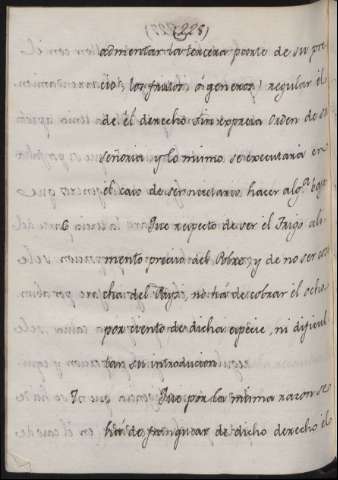 (228)
aumentar la tercera parte de su pre
cio, los frutos ó generos, regular el
de el derecho sin expresa Orden de su
señoria y lo mismo se executaria en
el caso de ser necesario hacer alg.ª baja
6 Que respecto de ser el Trigo ali
mento preciso del Pobre, y de no ser cose
cha del Pays, no há de cobrar el ocho
por ciento de dicha especie, ni dificul
tar su introducion
7 Que por la misma razon se
há de franquear de dicho derecho él